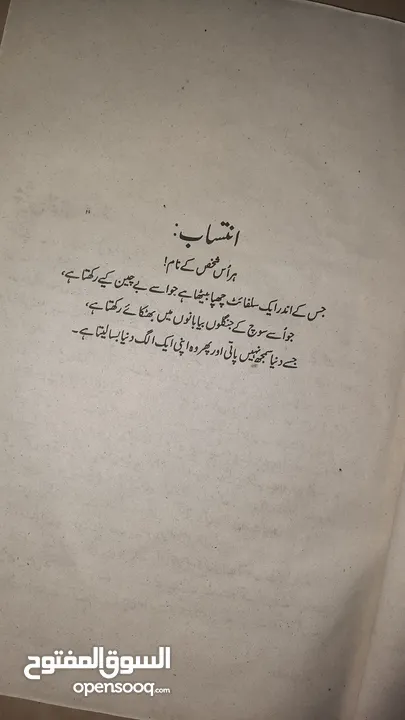 انتساب:
ہر اُس شخص کے نام!
جس کے اندر ایک سلفائٹ چھپا بیٹھا ہے جو اسے بے چین کیے رکھتا ہے،
جو اُسے سوچ کے جنگلوں بیابانوں میں بھٹکائے رکھتا ہے،
جسے دنیا سمجھ نہیں پاتی اور پھر وہ اپنی ایک الگ دنیا بسا لیتا ہے۔
السوق المفتوح
opensooq.com